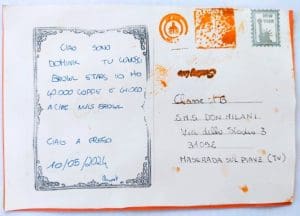 CIAO SONO
DOMINIK TU CONOSCI
BRAWL STARS IO HO
40.000 COPPE E GIOCO
A CLASH
BRAWL
CIAO A PRESTO
10/05/2024
Classe
S.M.S. DON MILANI
Via dello Stadio 3
31052
MASERADA SUL PIAVE (TV)